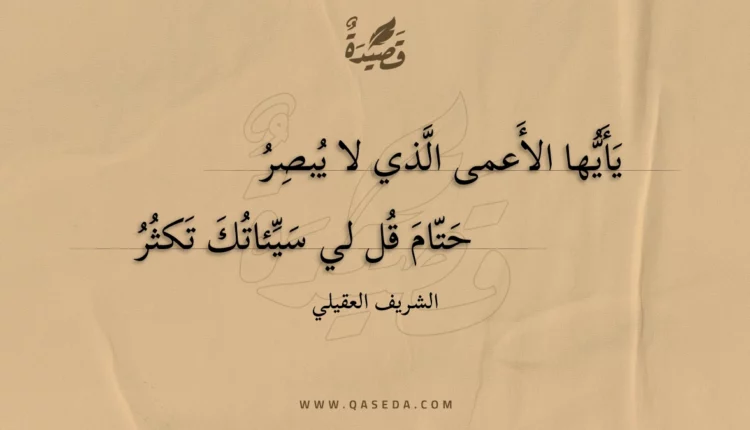 قَصِيدَةٌ
يَأَيُّها الأَعمى الَّذي لا يُبصِرُ
حَتّامَ قُل لي سَيِّئاتُكَ تَكثُرُ
الشريف العقيلي
WWW.QASEDA.COM